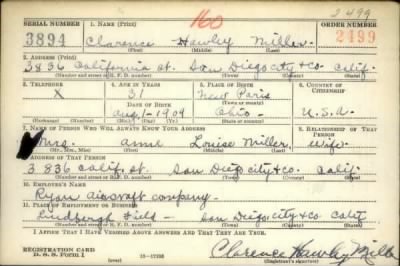 2499
SERIAL NUMBER
1. NAME (Print)
160
ORDER NUMBER
3894
Clarence Hawley Miller
2499
(First) (Middle) (Last)
2. ADDRESS (Print)
3836 California st. San Diego city & co. Calif.
(Number and street or R. F. D. number) (Town) (County) (State)
3. TELEPHONE
4. AGE IN YEARS
5. PLACE OF BIRTH
6. COUNTRY OF CITIZENSHIP
X
31
New Paris
DATE OF BIRTH
(Town or county)
Aug 1 - 1909
Ohio -
U.S.A.
(Exchange) (Number)
(Mo.) (Day) (Yr.)
(State or country)
7. NAME OF PERSON WHO WILL ALWAYS KNOW YOUR ADDRESS
8. RELATIONSHIP OF THAT PERSON
Mrs. Louise Miller, wife
(Mr., Mrs., Miss) (First) (Middle) (Last)
9. ADDRESS OF THAT PERSON
3836 Calif. st. San Diego city & co. Calif.
(Number and street or R. F. D. number) (Town) (County) (State)
10. EMPLOYER'S NAME
Ryan Aircraft company -
11. PLACE OF EMPLOYMENT OR BUSINESS
Lindbergh Field - San Diego, city & co Calif
(Number and street or R. F. D. number) (Town) (County) (State)
I AFFIRM THAT I HAVE VERIFIED ABOVE ANSWERS AND THAT THEY ARE TRUE.
REGISTRATION CARD
D. S. S. Form 1
Clarence Hawley Miller
(Registrant's signature)